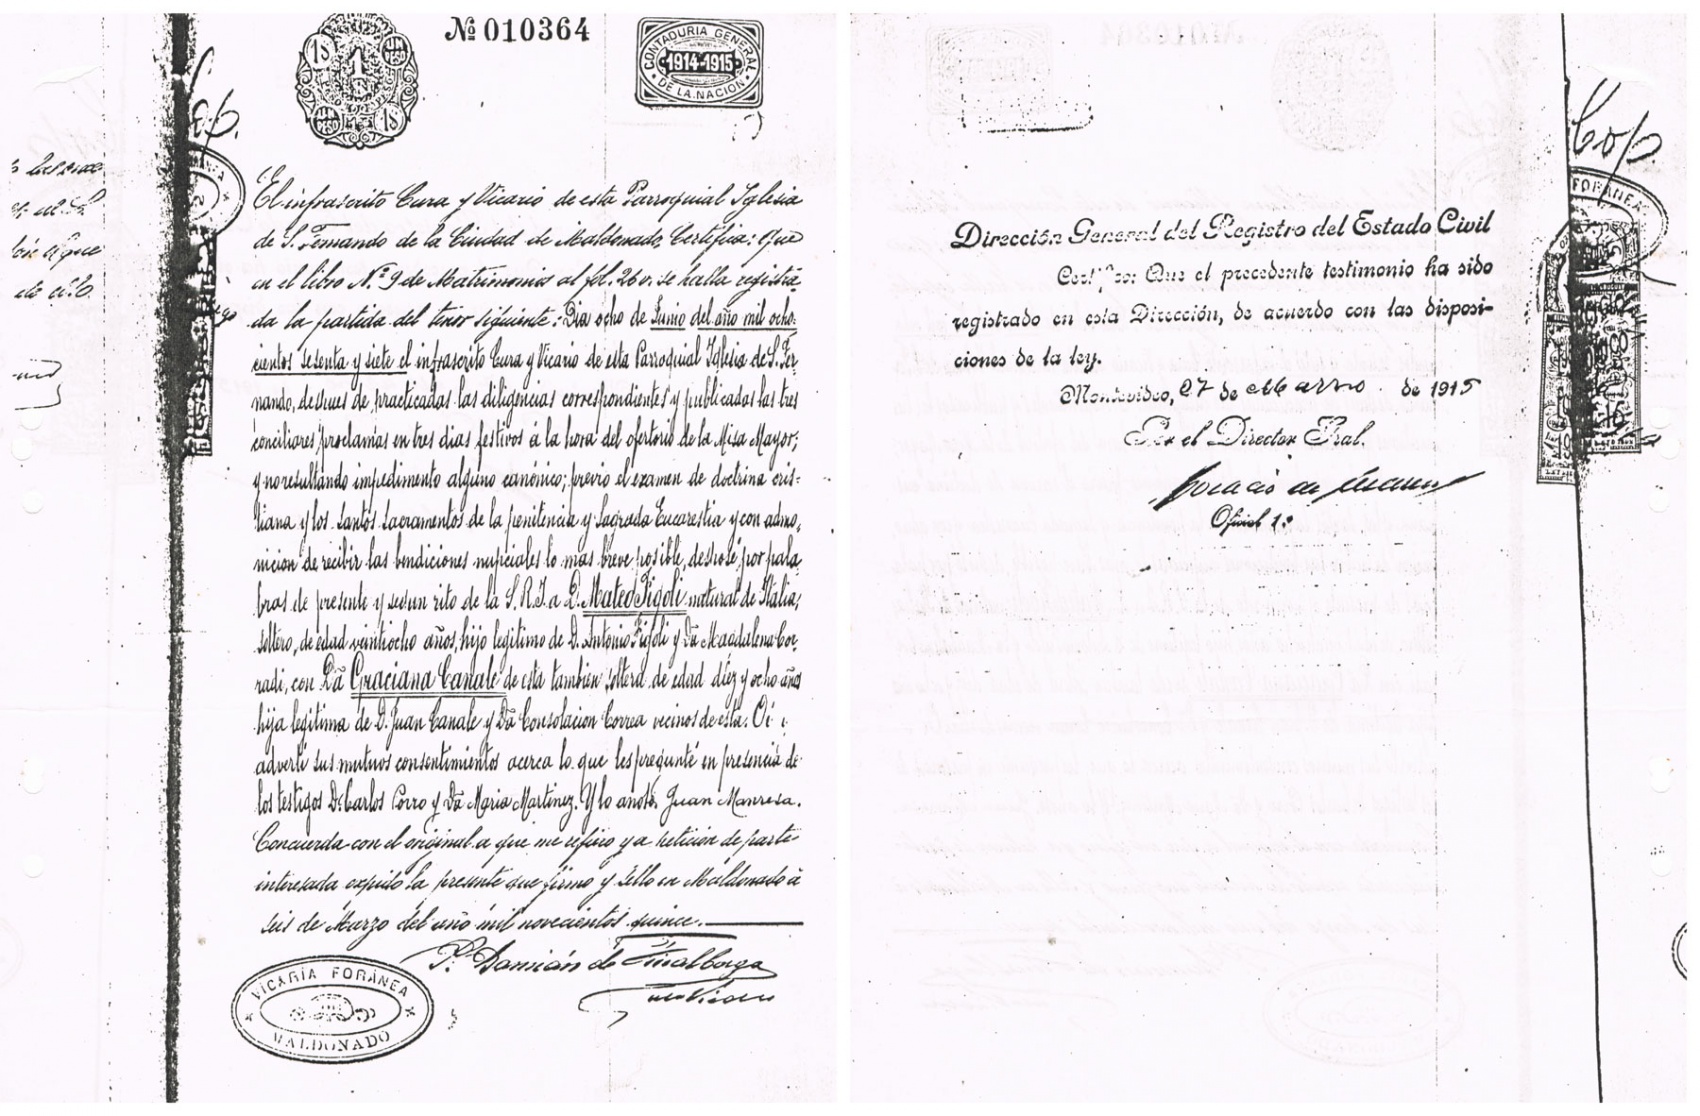 Nº 010364
1$
1$
1
1$
CONTADURIA GENERAL
1914-1915
DE LA NACION
Cop.
El infrascrito Cura y Vicario de esta Parroquial Iglesia
de S. Fernando de la Ciudad de Maldonado, Certifica: Que
en el libro Nº 9 de Matrimonios al fol. 26 v. se halla registra
da la partida del tenor siguiente: Dia ocho de Junio del año mil ocho-
cientos sesenta y siete el infrascrito Cura y Vicario de esta Parroquial Iglesia de S. Fer-
nando, despues de practicadas las diligencias correspondientes y publicadas las tres
conciliares proclamas en tres dias festivos á la hora del ofertorio de la Misa Mayor;
y no resultando impedimento alguno canónico; previo el examen de doctrina cris-
tiana y los santos sacramentos de la penitencia y sagrada Eucarestia y con admo-
nicion de recibir las bendiciones nupciales lo mas breve posible, desposé, por pala-
bras de presente y segun rito de la S. R. I. a D. Mateo Figoli natural de Italia,
soltero, de edad veintiocho años, hijo legitimo de D. Antonio Figoli y Dª Magdalena Cor-
radi, con Dª Graciana Canale de esta tambien soltera de edad diez y ocho años
hija legitima de D. Juan Canale y Dª Consolacion Correa vecinos de esta. Oi i
adverti sus mutuos consentimientos acerca lo que les pregunté en presencia de
los testigos D. Carlos Porro y Dª Maria Martinez. Y lo anoté, Juan Manresa.
Concuerda con el original a que me refiero y a peticion de parte
interesada expido la presente que firmo y sello en Maldonado á
seis de Marzo del año mil novecientos quince.
P. Damián de
VICARÍA FORÁNEA
MALDONADO
Cop.
FORÁNEA
Dirección General del Registro del Estado Civil
Certifico: Que el precedente testimonio ha sido
registrado en esta Dirección, de acuerdo con las disposi-
ciones de la ley.
Montevideo, 27 de Marzo de 1915
Por el Director Gral.
Horacio
Oficial 1º